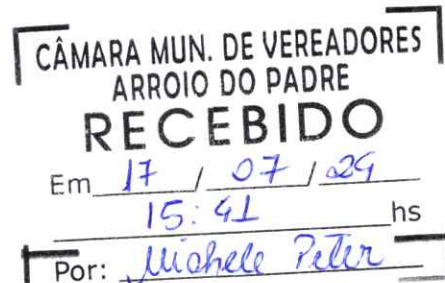 CÂMARA MUN. DE VEREADORES
ARROIO DO PADRE
RECEBIDO
Em 17 / 07 / 24
15:41 hs
Por: Michele Peter